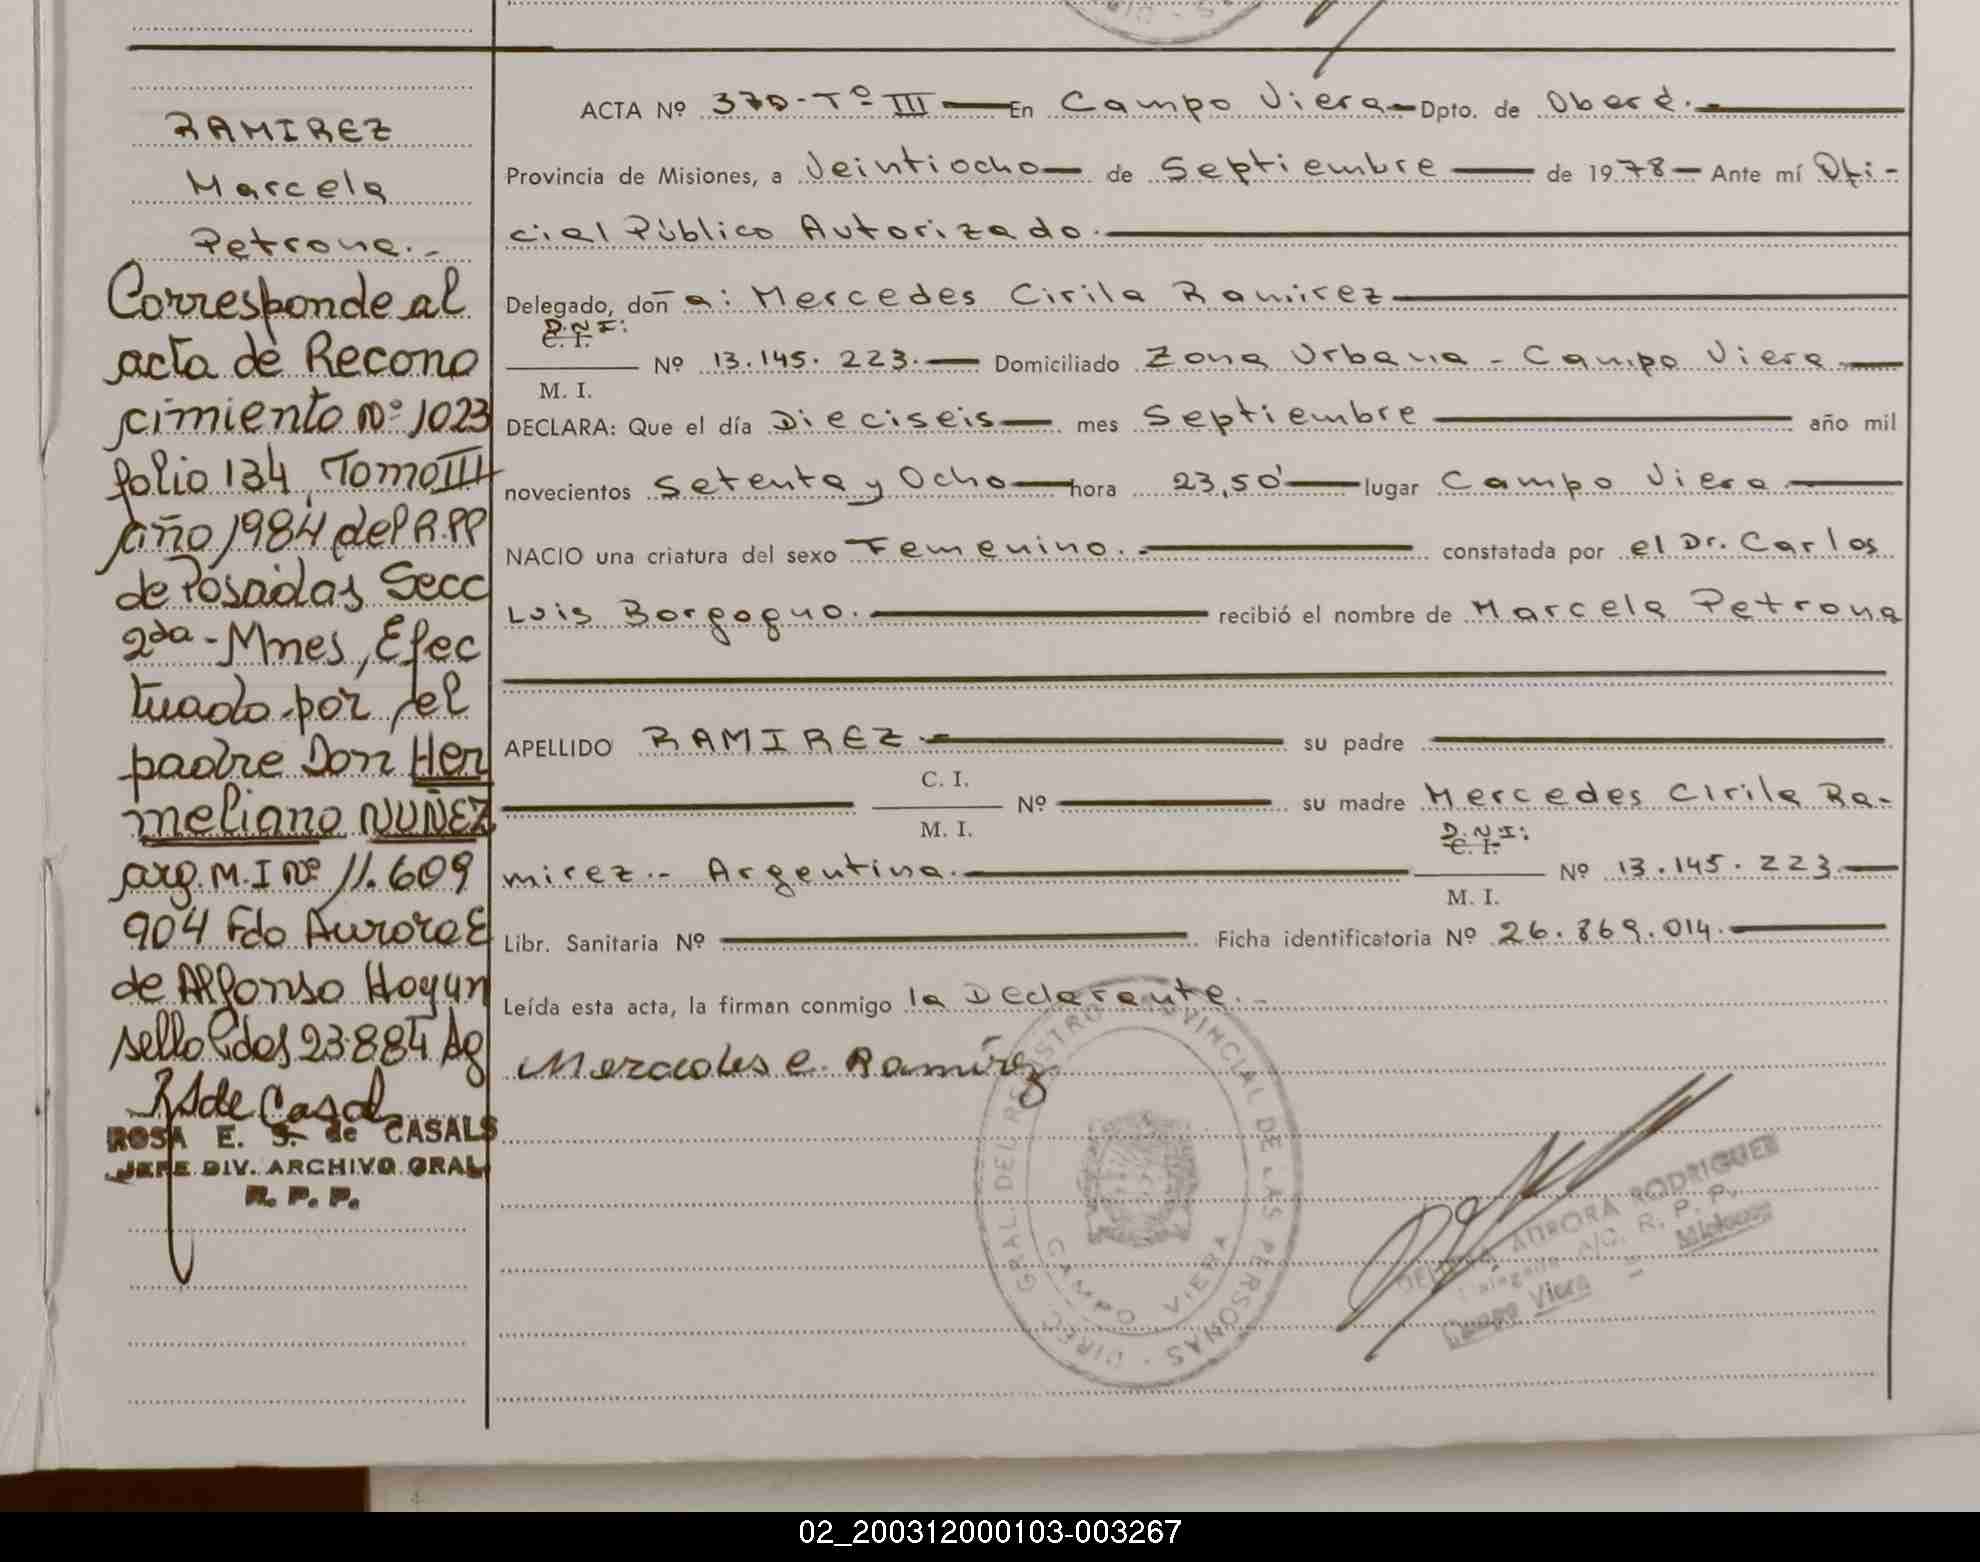 RAMIREZ
Marcela
Petrona.-
Corresponde al
acta de Recono
cimiento Nº 1023
folio 134, Tomo III
año 1984 del R.PP
de Posadas Secc
2da - Mnes, Efec
tuado por el
padre Don Her
meliano NUÑEZ
arg. M.I Nº 11.609
904 Fdo Aurora E
de Alfonso Hay un
sello Pdas 23.8.84
RSde Casals
ROSA E. S. de CASALS
JEFE DIV. ARCHIVO GRAL
R. P. P.
ACTA Nº 370-Tº III En Campo Viera Dpto. de Oberá.-
Provincia de Misiones, a Veintiocho de Septiembre de 1978 Ante mí Ofi-
cial Público Autorizado.
Delegado, doña: Mercedes Cirila Ramirez
D.N.I:
C. I.
Nº 13.145.223. Domiciliado Zona Urbana - Campo Viera
M. I.
DECLARA: Que el día Dieciseis mes Septiembre año mil
novecientos Setenta y Ocho hora 23,50' lugar Campo Viera
NACIO una criatura del sexo Femenino.- constatada por el Dr. Carlos
Luis Borgogno. recibió el nombre de Marcela Petrona
APELLIDO RAMIREZ.- su padre
C. I.
Nº su madre Mercedes Cirila Ra-
M. I.
D.N.I:
C. I.
mirez.- Argentina. Nº 13.145.223
M. I.
Libr. Sanitaria Nº Ficha identificatoria Nº 26.869.014.
Leída esta acta, la firman conmigo la Declarante.-
Mercedes C. Ramírez
DIREC. GRAL. DEL REGISTRO PROVINCIAL DE LAS PERSONAS
CAMPO VIERA
AURORA RODRIGUEZ
Delegada A/C. R. P. P.
Campo Viera - Misiones
02_200312000103-003267